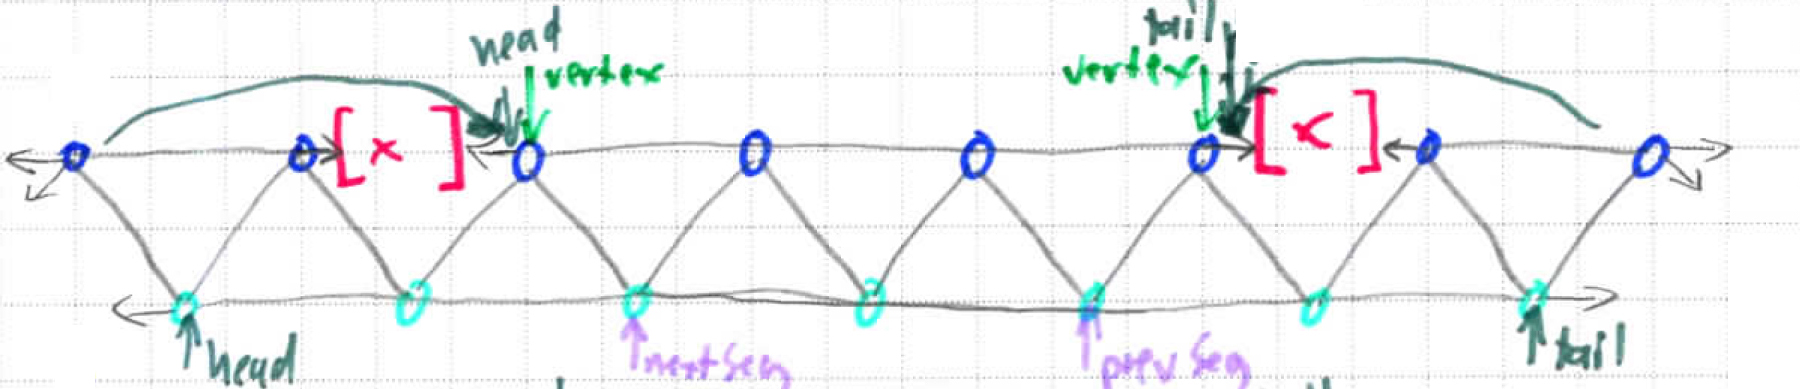 head
vertex
tail
vertex
[ x ]
[ < ]
head
nextSeg
prevSeg
tail